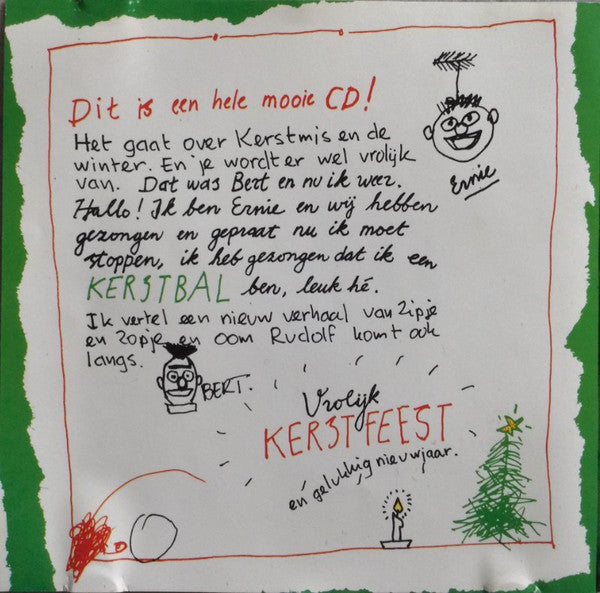 Dit is een hele mooie CD!
Het gaat over Kerstmis en de
winter. En je wordt er wel vrolijk
van. Dat was Bert en nu ik weer.
Hallo! Ik ben Ernie en wij hebben
gezongen en gepraat nu ik moet
stoppen, ik heb gezongen dat ik een
KERSTBAL ben, leuk hé.
Ik vertel een nieuw verhaal van Zipje
en Zopje en oom Rudolf komt ook
langs.
Ernie
BERT.
Vrolijk
KERSTFEEST
en gelukkig nieuwjaar.